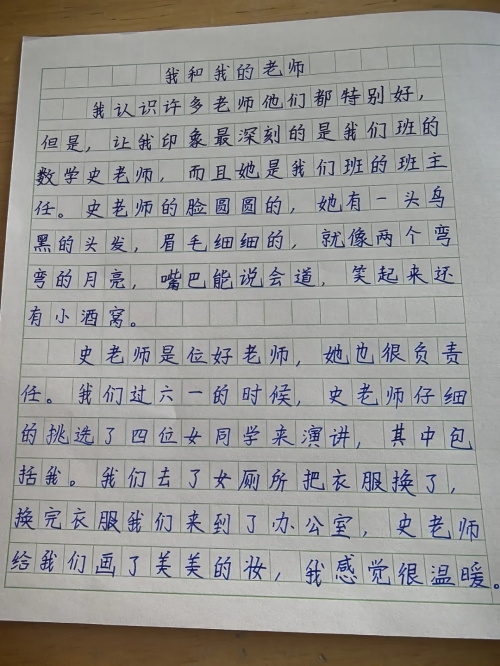 我和我的老师
我认识许多老师他们都特别好，
但是，让我印象最深刻的是我们班的
数学史老师，而且她是我们班的班主
任。史老师的脸圆圆的，她有一头乌
黑的头发，眉毛细细的，就像两个弯
弯的月亮，嘴巴能说会道，笑起来还
有小酒窝。
史老师是位好老师，她也很负责
任。我们过六一的时候，史老师仔细
的挑选了四位女同学来演讲，其中包
括我。我们去了女厕所把衣服换了，
换完衣服我们来到了办公室，史老师
给我们画了美美的妆，我感觉很温暖。